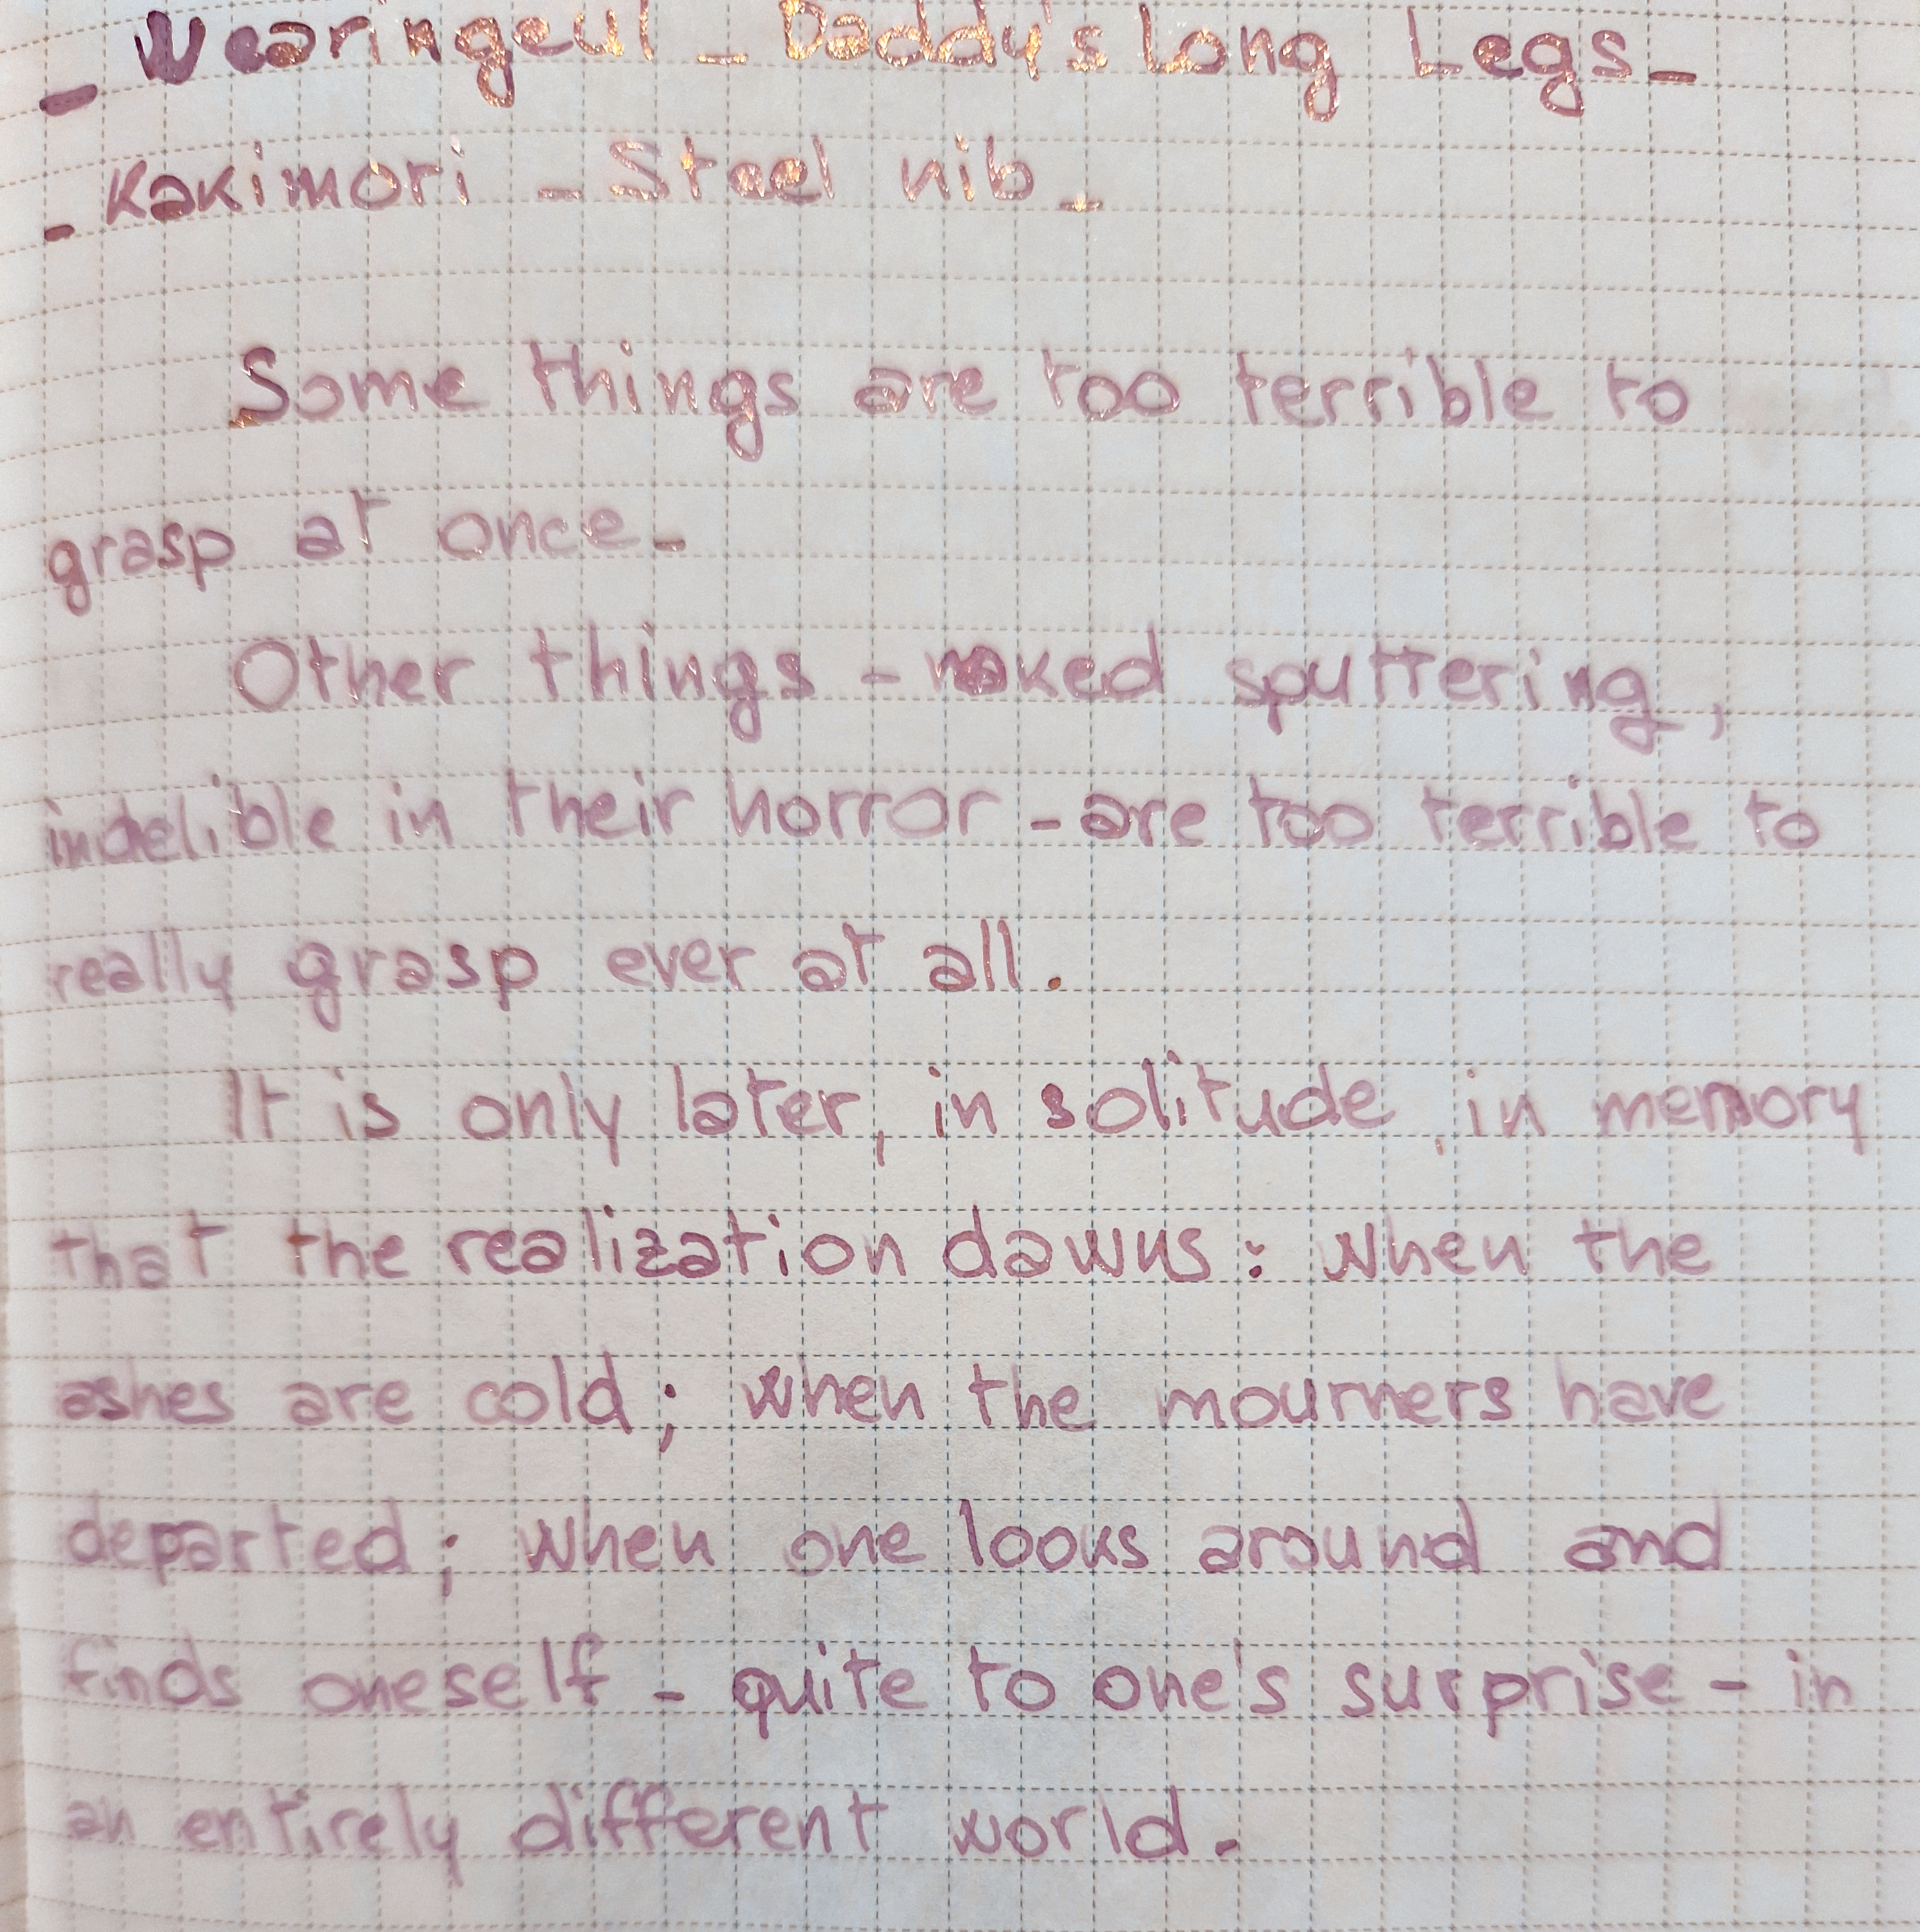 _ Wearingeul _ Daddy's long Legs _
- Kakimori - Steel nib _
Some things are too terrible to
grasp at once_
Other things - naked sputtering,
indelible in their horror - are too terrible to
really grasp ever at all.
It is only later, in solitude, in memory
that the realization dawns: when the
ashes are cold; when the mourners have
departed; when one looks around and
finds oneself - quite to one's surprise - in
an entirely different world.